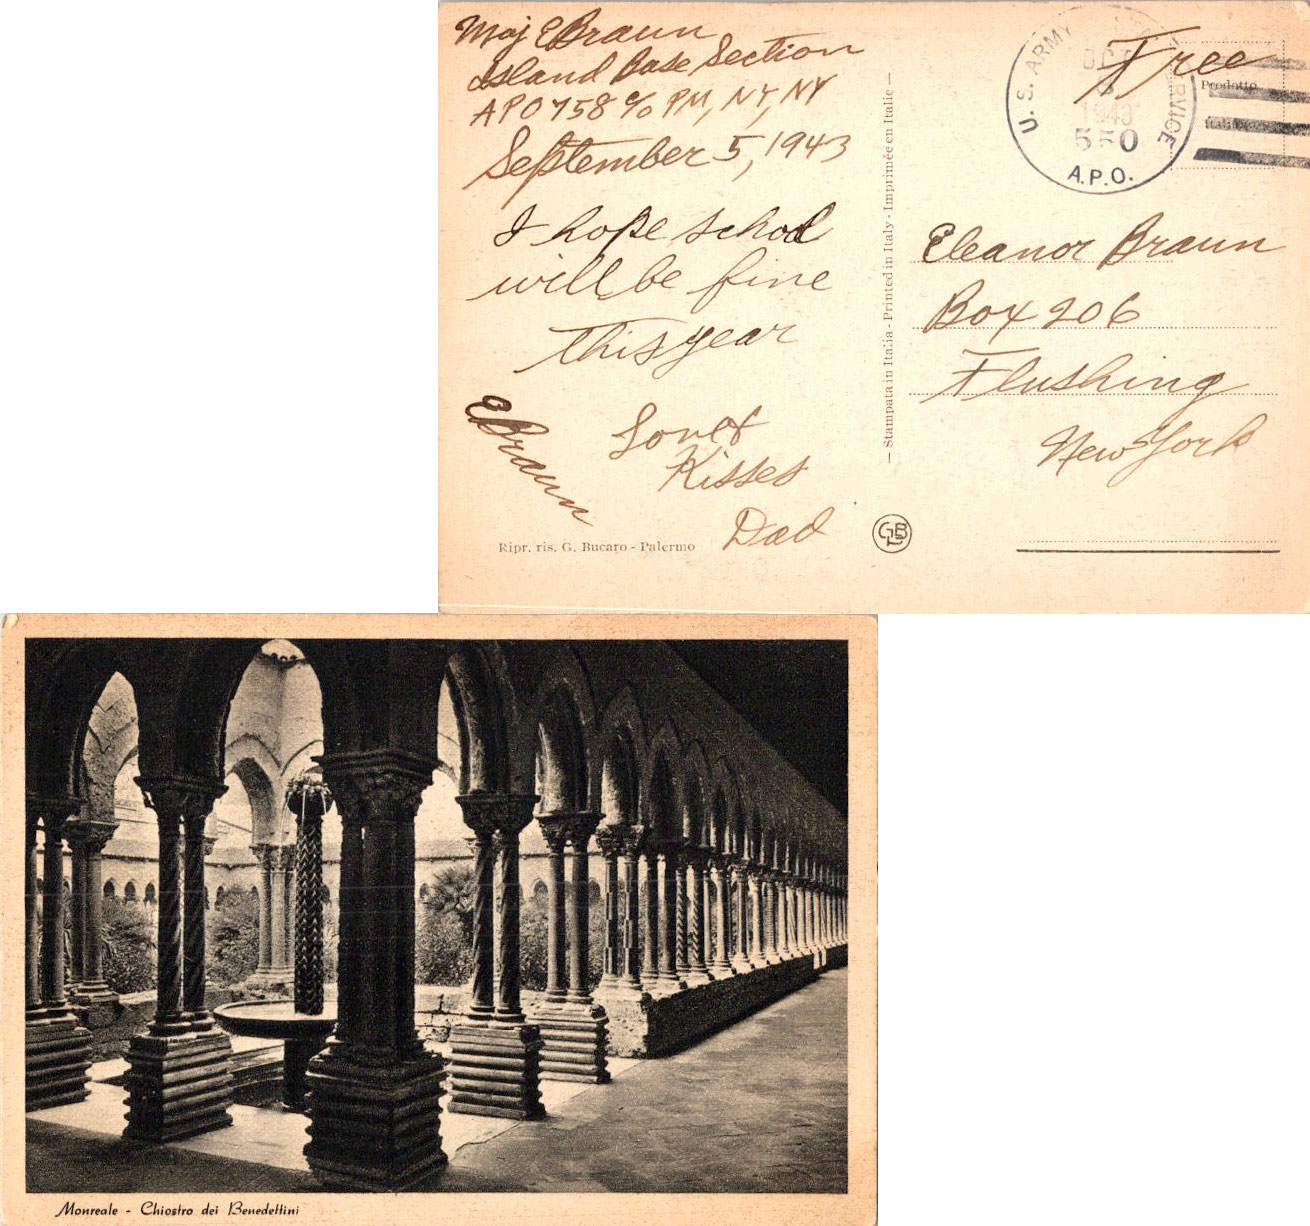 Maj E Braun
Island Base Section
APO 758 c/o PM, NY, NY
September 5, 1943
I hope school
will be fine
this year
Love &
Kisses
Dad
EBraun
Ripr. ris. G. Bucaro - Palermo
— Stampata in Italia - Printed in Italy - Imprimée en Italie —
GBL
U. S. ARMY
1943
550
A.P.O.
Free
Prodotto
Eleanor Braun
Box 206
Flushing
New York
Monreale - Chiostro dei Benedettini